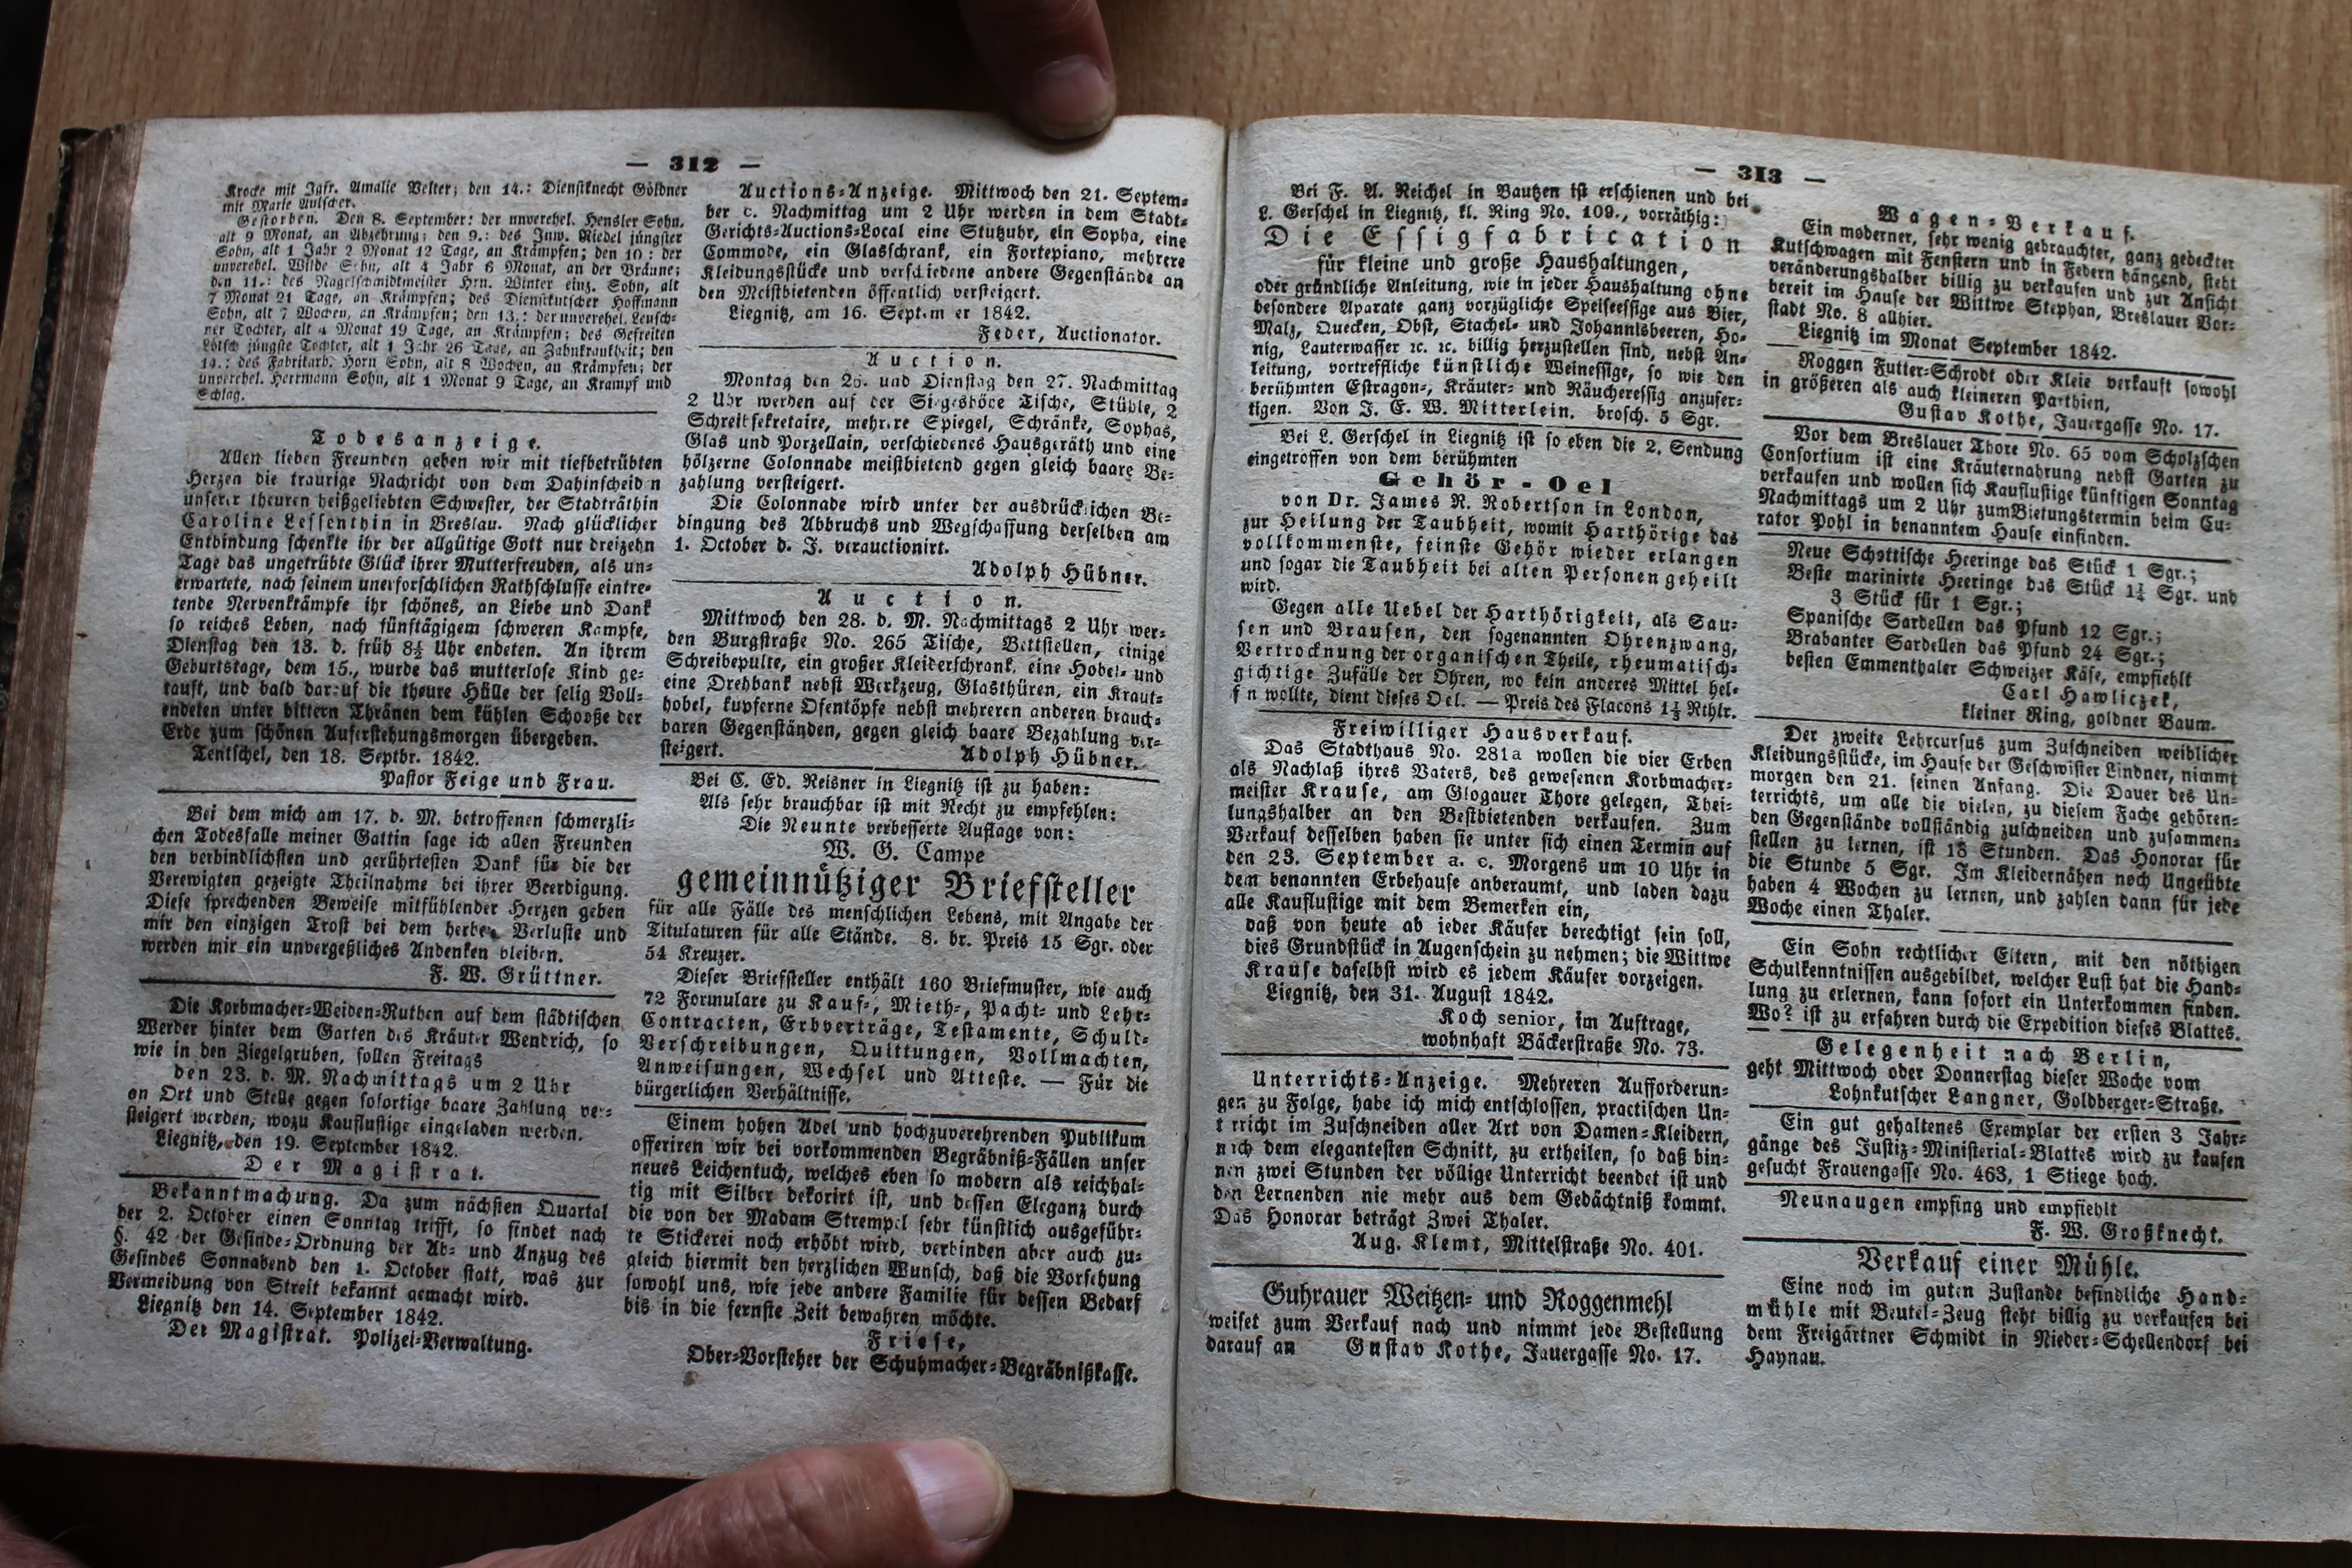 — 312 —
Krocke mit Jgfr. Amalie Velter; den 14.: Dienstknecht Göldner
mit Marie Aulscher.
Gestorben. Den 8. September: der unverehel. Hensler Sohn,
alt 9 Monat, an Abzehrung; den 9.: des Inw. Riedel jüngster
Sohn, alt 1 Jahr 2 Monat 12 Tage, an Krämpfen; den 10: der
unverehel. Wilde Sohn, alt 4 Jahr 6 Monat, an der Bräune;
den 11.: des Nagelschmidtmeister Hrn. Winter einz. Sohn, alt
7 Monat 21 Tage, an Krämpfen; des Dienstkutscher Hoffmann
Sohn, alt 7 Wochen, an Krämpfen; den 13.: der unverehel. Leusch-
ner Tochter, alt 4 Monat 19 Tage, an Krämpfen; des Gefreiten
Lötsch jüngste Tochter, alt 1 Jahr 26 Tage, an Zahnkrankheit; den
14.: des Fabrikarb. Horn Sohn, alt 8 Wochen, an Krämpfen; der
unverehel. Herrmann Sohn, alt 1 Monat 9 Tage, an Krampf und
Schlag.
Todesanzeige.
Allen lieben Freunden geben wir mit tiefbetrübten
Herzen die traurige Nachricht von dem Dahinscheiden
unserer theuren heißgeliebten Schwester, der Stadträthin
Caroline Lessenthin in Breslau. Nach glücklicher
Entbindung schenkte ihr der allgütige Gott nur dreizehn
Tage das ungetrübte Glück ihrer Mutterfreuden, als un-
erwartete, nach seinem unerforschlichen Rathschlusse eintre-
tende Nervenkrämpfe ihr schönes, an Liebe und Dank
so reiches Leben, nach fünftägigem schweren Kampfe,
Dienstag den 13. d. früh 8½ Uhr endeten. An ihrem
Geburtstage, dem 15., wurde das mutterlose Kind ge-
tauft, und bald darauf die theure Hülle der selig Voll-
endeten unter bittern Thränen dem kühlen Schooße der
Erde zum schönen Auferstehungsmorgen übergeben.
Tentschel, den 18. Septbr. 1842.
Pastor Feige und Frau.
Bei dem mich am 17. d. M. betroffenen schmerzli-
chen Todesfalle meiner Gattin sage ich allen Freunden
den verbindlichsten und gerührtesten Dank für die der
Verewigten gezeigte Theilnahme bei ihrer Beerdigung.
Diese sprechenden Beweise mitfühlender Herzen geben
mir den einzigen Trost bei dem herben Verluste und
werden mir ein unvergeßliches Andenken bleiben.
F. W. Grüttner.
Die Korbmacher-Weiden-Ruthen auf dem städtischen
Werder hinter dem Garten des Kräuter Wendrich, so
wie in den Ziegelgruben, sollen Freitags
den 23. d. M. Nachmittags um 2 Uhr
an Ort und Stelle gegen sofortige baare Zahlung ver-
steigert werden, wozu Kauflustige eingeladen werden.
Liegnitz, den 19. September 1842.
Der Magistrat.
Bekanntmachung. Da zum nächsten Quartal
der 2. October einen Sonntag trifft, so findet nach
§. 42 der Gesinde-Ordnung der Ab- und Anzug des
Gesindes Sonnabend den 1. October statt, was zur
Vermeidung von Streit bekannt gemacht wird.
Liegnitz den 14. September 1842.
Der Magistrat. Polizei-Verwaltung.
Auctions-Anzeige. Mittwoch den 21. Septem-
ber c. Nachmittag um 2 Uhr werden in dem Stadt-
Gerichts-Auctions-Local eine Stutzuhr, ein Sopha, eine
Commode, ein Glasschrank, ein Fortepiano, mehrere
Kleidungsstücke und verschiedene andere Gegenstände an
den Meistbietenden öffentlich versteigert.
Liegnitz, am 16. September 1842.
Feder, Auctionator.
Auction.
Montag den 26. und Dienstag den 27. Nachmittag
2 Uhr werden auf der Siegeshöhe Tische, Stühle, 2
Schreibsekretaire, mehrere Spiegel, Schränke, Sophas,
Glas und Porzellain, verschiedenes Hausgeräth und eine
hölzerne Colonnade meistbietend gegen gleich baare Be-
zahlung versteigert.
Die Colonnade wird unter der ausdrücklichen Be-
dingung des Abbruchs und Wegschaffung derselben am
1. October d. J. verauctionirt.
Adolph Hübner.
Auction.
Mittwoch den 28. d. M. Nachmittags 2 Uhr wer-
den Burgstraße No. 265 Tische, Bettstellen, einige
Schreibepulte, ein großer Kleiderschrank, eine Hobel- und
eine Drehbank nebst Werkzeug, Glasthüren, ein Kraut-
hobel, kupferne Ofentöpfe nebst mehreren anderen brauch-
baren Gegenständen, gegen gleich baare Bezahlung ver-
steigert. Adolph Hübner.
Bei C. Ed. Reisner in Liegnitz ist zu haben:
Als sehr brauchbar ist mit Recht zu empfehlen:
Die Neunte verbesserte Auflage von:
W. G. Campe
gemeinnütziger Briefsteller
für alle Fälle des menschlichen Lebens, mit Angabe der
Titulaturen für alle Stände. 8. br. Preis 15 Sgr. oder
54 Kreuzer.
Dieser Briefsteller enthält 160 Briefmuster, wie auch
72 Formulare zu Kauf-, Mieth-, Pacht- und Lehr-
Contracten, Erbverträge, Testamente, Schuld-
Verschreibungen, Quittungen, Vollmachten,
Anweisungen, Wechsel und Atteste. — Für die
bürgerlichen Verhältnisse.
Einem hohen Adel und hochzuverehrenden Publikum
offeriren wir bei vorkommenden Begräbniß-Fällen unser
neues Leichentuch, welches eben so modern als reichhal-
tig mit Silber dekorirt ist, und dessen Eleganz durch
die von der Madam Strempel sehr künstlich ausgeführ-
te Stickerei noch erhöht wird, verbinden aber auch zu-
gleich hiermit den herzlichen Wunsch, daß die Vorsehung
sowohl uns, wie jede andere Familie für dessen Bedarf
bis in die fernste Zeit bewahren möchte.
Friese,
Ober-Vorsteher der Schuhmacher-Begräbnißkasse.
— 313 —
Bei F. A. Reichel in Bautzen ist erschienen und bei
L. Gerschel in Liegnitz, kl. Ring No. 109., vorräthig:
Die Essigfabrication
für kleine und große Haushaltungen,
oder gründliche Anleitung, wie in jeder Haushaltung ohne
besondere Aparate ganz vorzügliche Speiseessige aus Bier,
Malz, Quecken, Obst, Stachel- und Johannisbeeren, Ho-
nig, Lauterwasser ꝛc. ꝛc. billig herzustellen sind, nebst An-
leitung, vortreffliche künstliche Weinessige, so wie den
berühmten Estragon-, Kräuter- und Räucheressig anzufer-
tigen. Von J. E. W. Mitterlein. brosch. 5 Sgr.
Bei L. Gerschel in Liegnitz ist so eben die 2. Sendung
eingetroffen von dem berühmten
Gehör-Oel
von Dr. James R. Robertson in London,
zur Heilung der Taubheit, womit Harthörige das
vollkommenste, feinste Gehör wieder erlangen
und sogar die Taubheit bei alten Personen geheilt
wird.
Gegen alle Uebel der Harthörigkeit, als Sau-
sen und Brausen, den sogenannten Ohrenzwang,
Vertrocknung der organischen Theile, rheumatisch-
gichtige Zufälle der Ohren, wo kein anderes Mittel hel-
fen wollte, dient dieses Oel. — Preis des Flacons 1⅓ Rthlr.
Freiwilliger Hausverkauf.
Das Stadthaus No. 281a wollen die vier Erben
als Nachlaß ihres Vaters, des gewesenen Korbmacher-
meister Krause, am Glogauer Thore gelegen, Thei-
lungshalber an den Bestbietenden verkaufen. Zum
Verkauf desselben haben sie unter sich einen Termin auf
den 23. September a. c. Morgens um 10 Uhr in
dem benannten Erbehause anberaumt, und laden dazu
alle Kauflustige mit dem Bemerken ein,
daß von heute ab jeder Käufer berechtigt sein soll,
dies Grundstück in Augenschein zu nehmen; die Wittwe
Krause daselbst wird es jedem Käufer vorzeigen.
Liegnitz, den 31. August 1842.
Koch senior, im Auftrage,
wohnhaft Bäckerstraße No. 73.
Unterrichts-Anzeige. Mehreren Aufforderun-
gen zu Folge, habe ich mich entschlossen, practischen Un-
terricht im Zuschneiden aller Art von Damen-Kleidern,
nach dem elegantesten Schnitt, zu ertheilen, so daß bin-
nen zwei Stunden der völlige Unterricht beendet ist und
den Lernenden nie mehr aus dem Gedächtniß kommt.
Das Honorar beträgt Zwei Thaler.
Aug. Klemt, Mittelstraße No. 401.
Guhrauer Weitzen- und Roggenmehl
weiset zum Verkauf nach und nimmt jede Bestellung
darauf an Gustav Kothe, Jauergasse No. 17.
Wagen-Verkauf.
Ein moderner, sehr wenig gebrauchter, ganz gedeckter
Kutschwagen mit Fenstern und in Federn hängend, steht
veränderungshalber billig zu verkaufen und zur Ansicht
bereit im Hause der Wittwe Stephan, Breslauer Vor-
stadt No. 8 allhier.
Liegnitz im Monat September 1842.
Roggen Futter-Schrodt oder Kleie verkauft sowohl
in größeren als auch kleineren Parthien,
Gustav Kothe, Jauergasse No. 17.
Vor dem Breslauer Thore No. 65 vom Scholzschen
Consortium ist eine Kräuternahrung nebst Garten zu
verkaufen und wollen sich Kauflustige künftigen Sonntag
Nachmittags um 2 Uhr zum Bietungstermin beim Cu-
rator Pohl in benanntem Hause einfinden.
Neue Schottische Heeringe das Stück 1 Sgr.;
Beste marinirte Heeringe das Stück 1¼ Sgr. und
3 Stück für 1 Sgr.;
Spanische Sardellen das Pfund 12 Sgr.;
Brabanter Sardellen das Pfund 24 Sgr.;
besten Emmenthaler Schweizer Käse, empfiehlt
Carl Hawliczek,
kleiner Ring, goldner Baum.
Der zweite Lehrcursus zum Zuschneiden weiblicher
Kleidungsstücke, im Hause der Geschwister Lindner, nimmt
morgen den 21. seinen Anfang. Die Dauer des Un-
terrichts, um alle die vielen, zu diesem Fache gehören-
den Gegenstände vollständig zuschneiden und zusammen-
stellen zu lernen, ist 18 Stunden. Das Honorar für
die Stunde 5 Sgr. Im Kleidernähen noch Ungeübte
haben 4 Wochen zu lernen, und zahlen dann für jede
Woche einen Thaler.
Ein Sohn rechtlicher Eltern, mit den nöthigen
Schulkenntnissen ausgebildet, welcher Lust hat die Hand-
lung zu erlernen, kann sofort ein Unterkommen finden.
Wo? ist zu erfahren durch die Expedition dieses Blattes.
Gelegenheit nach Berlin,
geht Mittwoch oder Donnerstag dieser Woche vom
Lohnkutscher Langner, Goldberger-Straße.
Ein gut gehaltenes Exemplar der ersten 3 Jahr-
gänge des Justiz-Ministerial-Blattes wird zu kaufen
gesucht Frauengasse No. 463, 1 Stiege hoch.
Neunaugen empfing und empfiehlt
F. W. Großknecht.
Verkauf einer Mühle.
Eine noch im guten Zustande befindliche Hand-
mühle mit Beutel-Zeug steht billig zu verkaufen bei
dem Freigärtner Schmidt in Nieder-Schellendorf bei
Haynau.